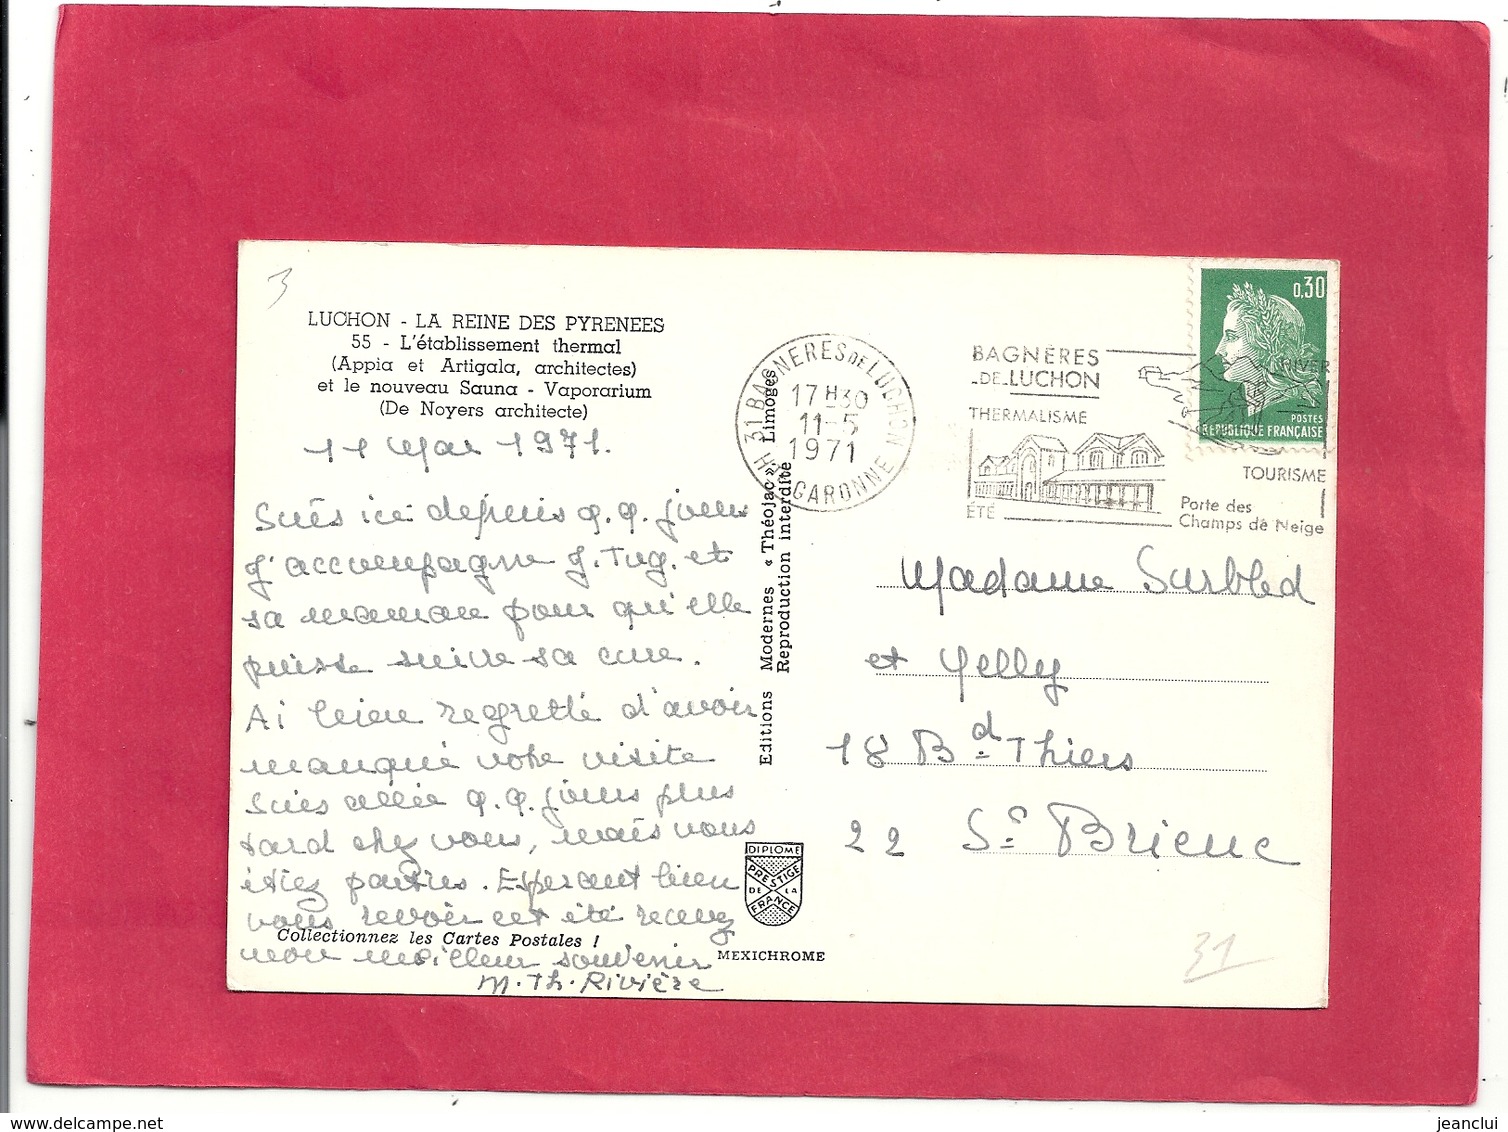 3
LUCHON - LA REINE DES PYRENEES
55 - L'établissement thermal
(Appia et Artigala, architectes)
et le nouveau Sauna - Vaporarium
(De Noyers architecte)
11 Mai 1971.
Suis ici depuis q.q. jours
J'accompagne J. Tug. et
sa maman pour qu'elle
puisse suivre sa cure.
Ai bien regretté d'avoir
manqué votre visite
Suis allée q.q. jours plus
tard chez vous, mais vous
étiez parties. Espérant bien
vous revoir cet été recevez
mon meilleur souvenir
M.Th. Rivière
Collectionnez les Cartes Postales !
Editions Modernes « Théojac » Limoges
Reproduction interdite
DIPLOME
PRESTIGE
DE LA
FRANCE
MEXICHROME
31 BAGNERES DE LUCHON
17 H 30
11-5
1971
HTE GARONNE
BAGNÈRES
-DE-LUCHON
THERMALISME
ÉTÉ
HIVER
TOURISME
Porte des
Champs de Neige
0,30
POSTES
REPUBLIQUE FRANÇAISE
Madame Surbled
et Yelly
18 Bd Thiers
22 St Brieuc
31
www.delcampe.net
jeanclui